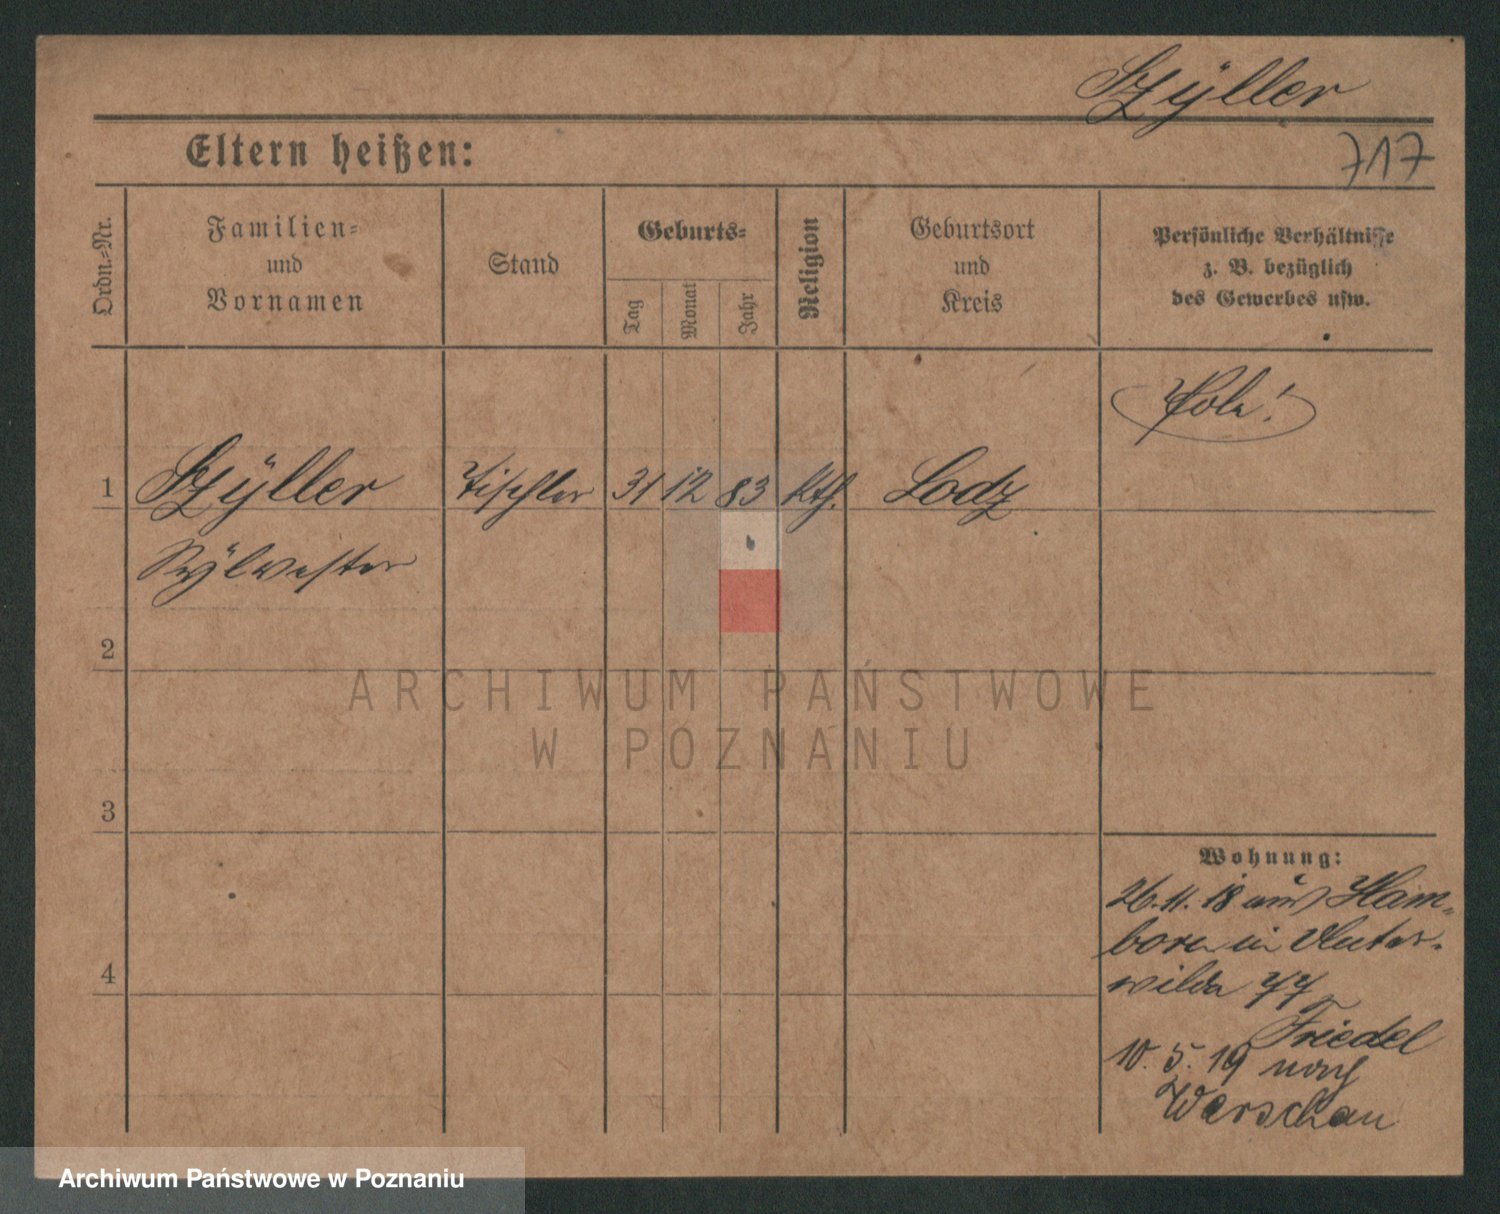 Szÿller
717
Eltern heißen:
Ordn.=Nr.
Familien=
und
Vornamen
Stand
Geburts=
Tag
Monat
Jahr
Religion
Geburtsort
und
Kreis
Persönliche Verhältnisse
z. B. bezüglich
des Gewerbes usw.
Pole!
1 Szÿller Tischler 31 12 83 kth. Lodz
Sÿlvester
2
ARCHIWUM PAŃSTWOWE
W POZNANIU
3
Wohnung:
26.11.18 aus Ham=
born in Unter=
wilda 77
Friedel
10.5.19 nach
Warschau
4
Archiwum Państwowe w Poznaniu